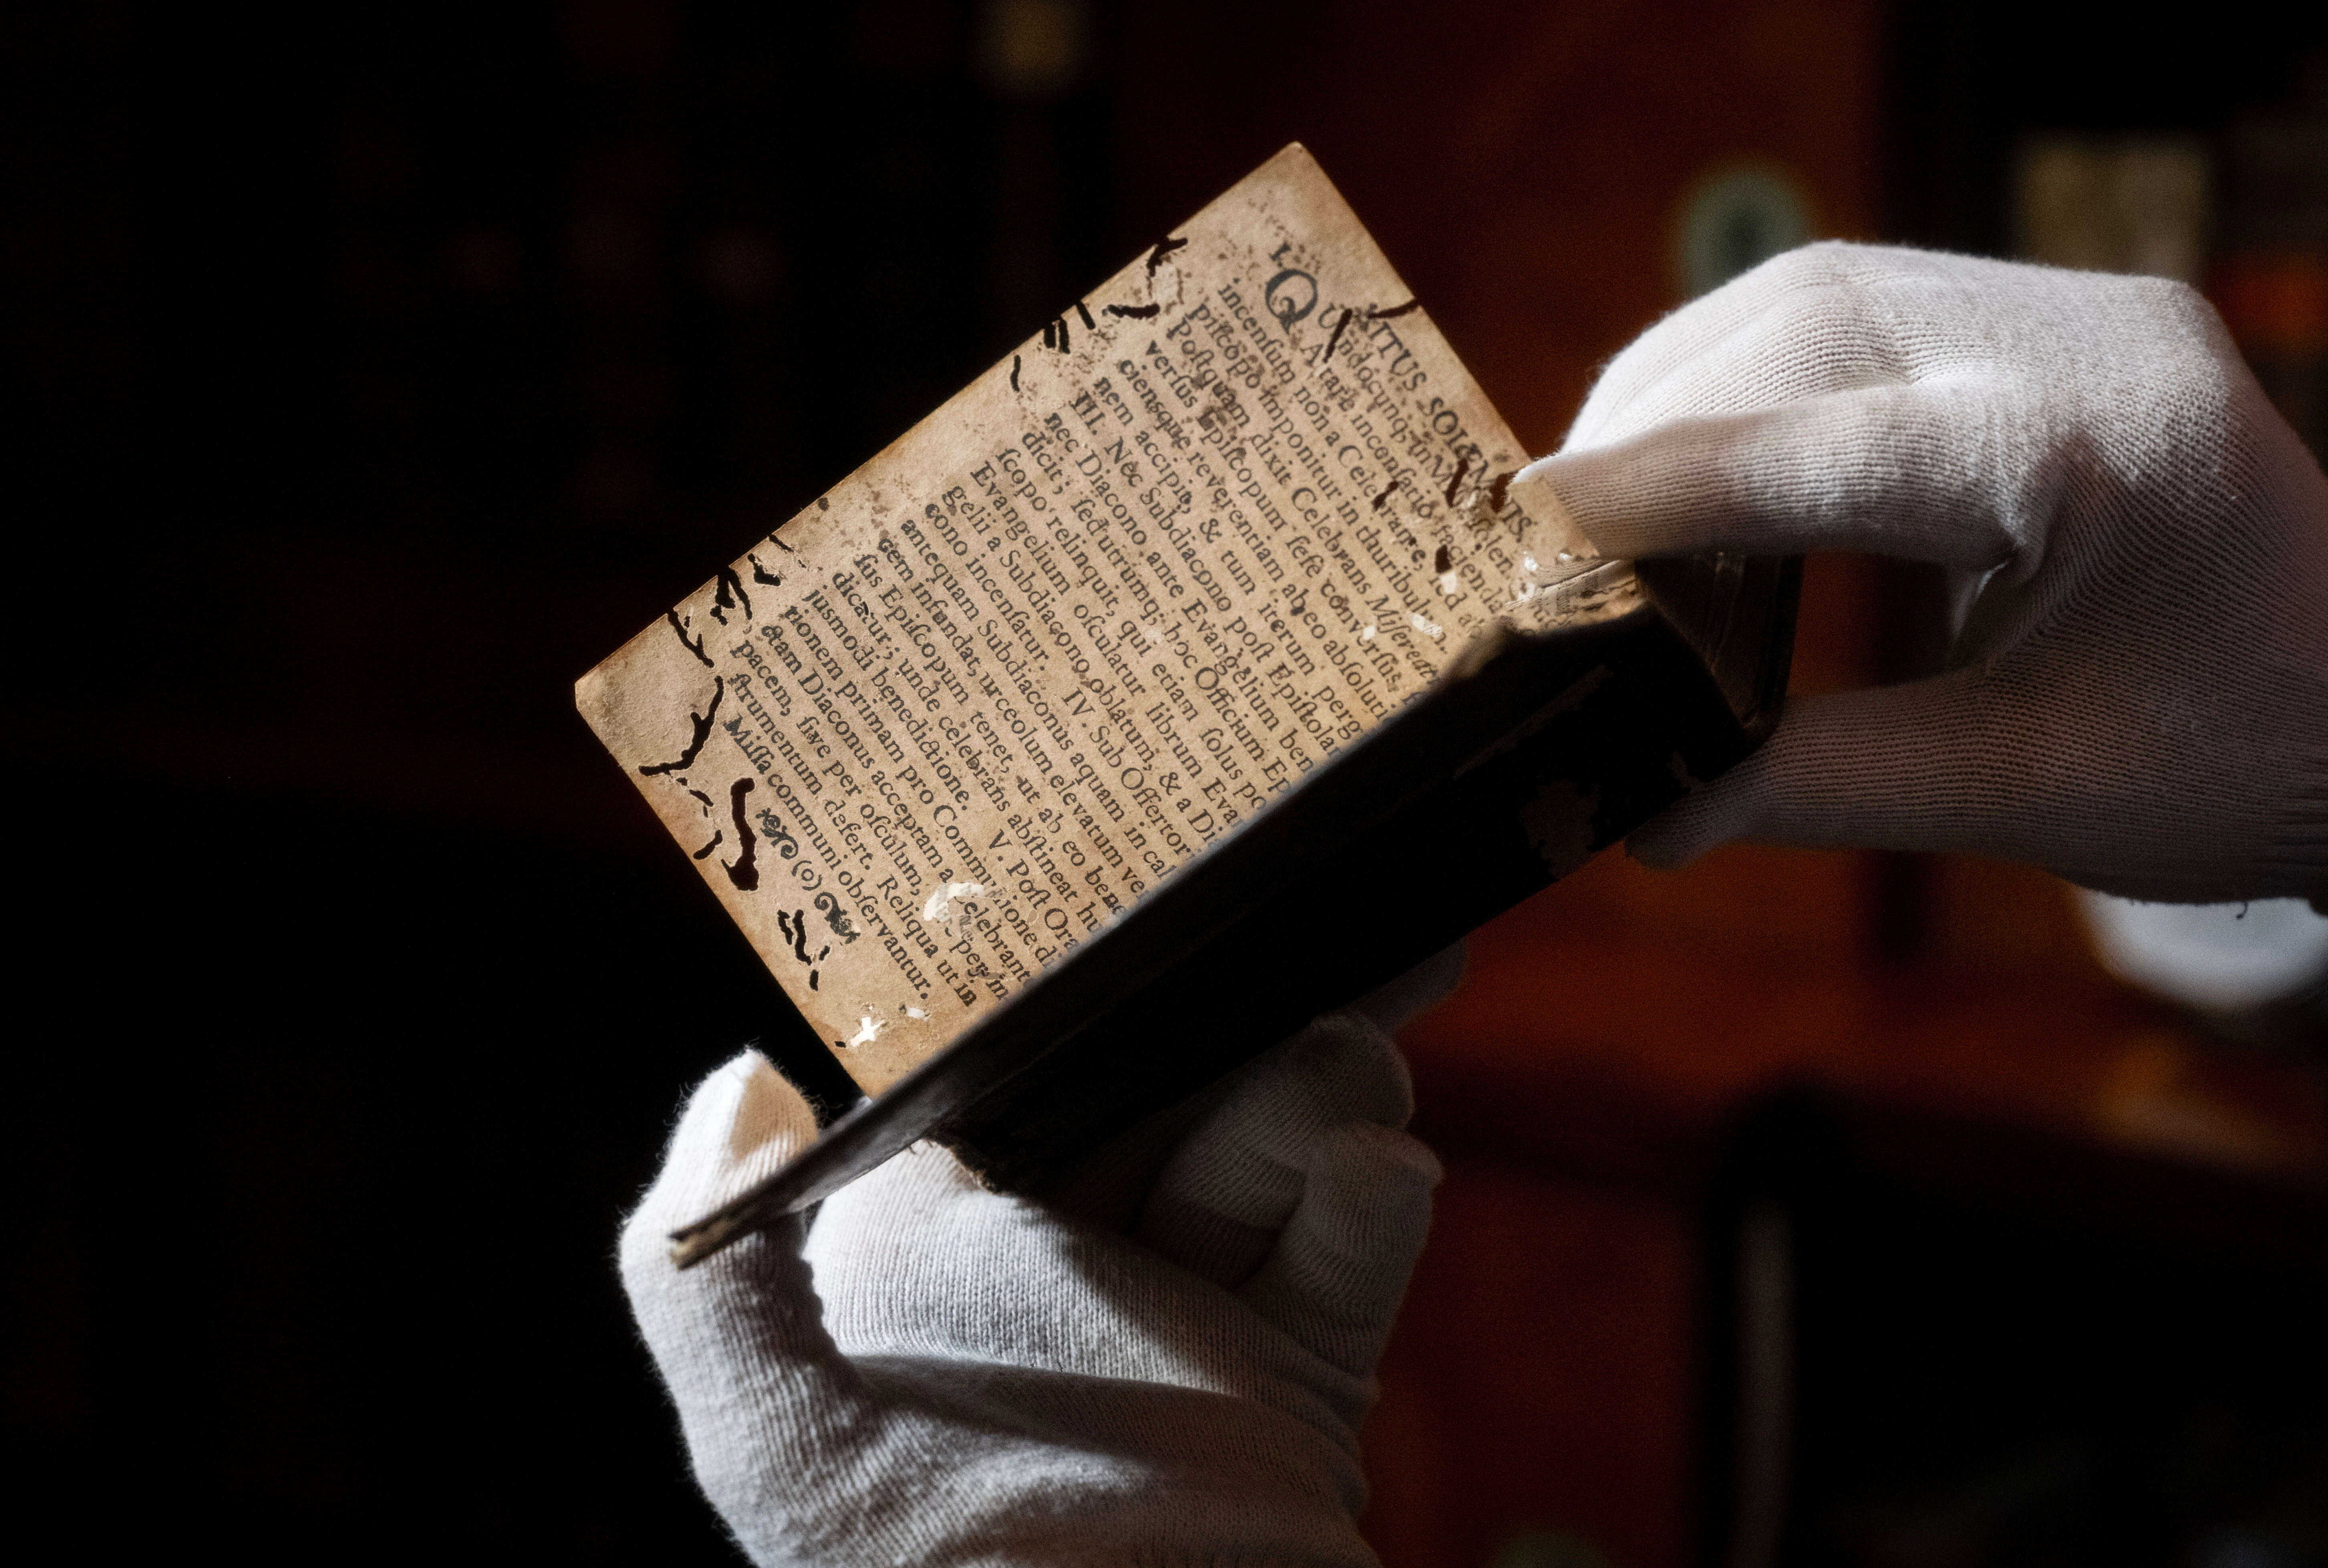 ITUS SOLEMNIS.
I. Quandocunq; in ſolen
incenſatio facienda
incenſum non a Celebrante, ſed a
piſcopo imponitur in thuribulu
Poſtquam dixit Celebrans Miſereat
verſus Epiſcopum ſeſe converſus,
cienſque reverentiam ab eo abſoluti
nem accipit, & tum iterum perg
III. Nec Subdiacono poſt Epiſtolam
nec Diacono ante Evangelium ben
dicit; ſeduturumq; hoc Officium Ep
ſcopo relinquit, qui etiam ſolus po
Evangelium oſculatur librum Eva
gelii a Subdiacono oblatum, & a Di
cono incenſatur. IV. Sub Offertor
antequam Subdiaconus aquam in cal
cem infundat, urceolum elevatum ve
ſus Epiſcopum tenet, ut ab eo bene
dicatur; unde celebrans abſtineat hu
jusmodi benedictione. V. Poſt Ora
rionem primam pro Communione di
ctam Diaconus acceptam a Celebrante
pacem, ſive per oſculum, per in
ſtrumentum defert. Reliqua ut in
Miſſa communi obſervantur.
(o)